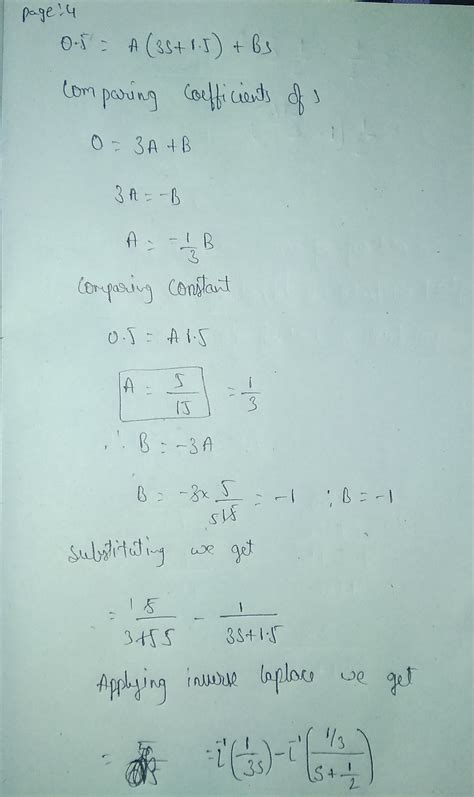 page:4
0.5 = A(3s+1.5) + Bs
Comparing coefficients of s
0 = 3A + B
3A = -B
A = -1/3 B
Comparing constant
0.5 = A 1.5
A = 5/15 = 1/3
∴ B = -3A
B = -3 × 5/15 = -1 ; B = -1
Substituting we get
= 1/3s - 1/(3s+1.5)
Applying inverse laplace we get
= L⁻¹(1/3s) - L⁻¹((1/3)/(s+1/2))